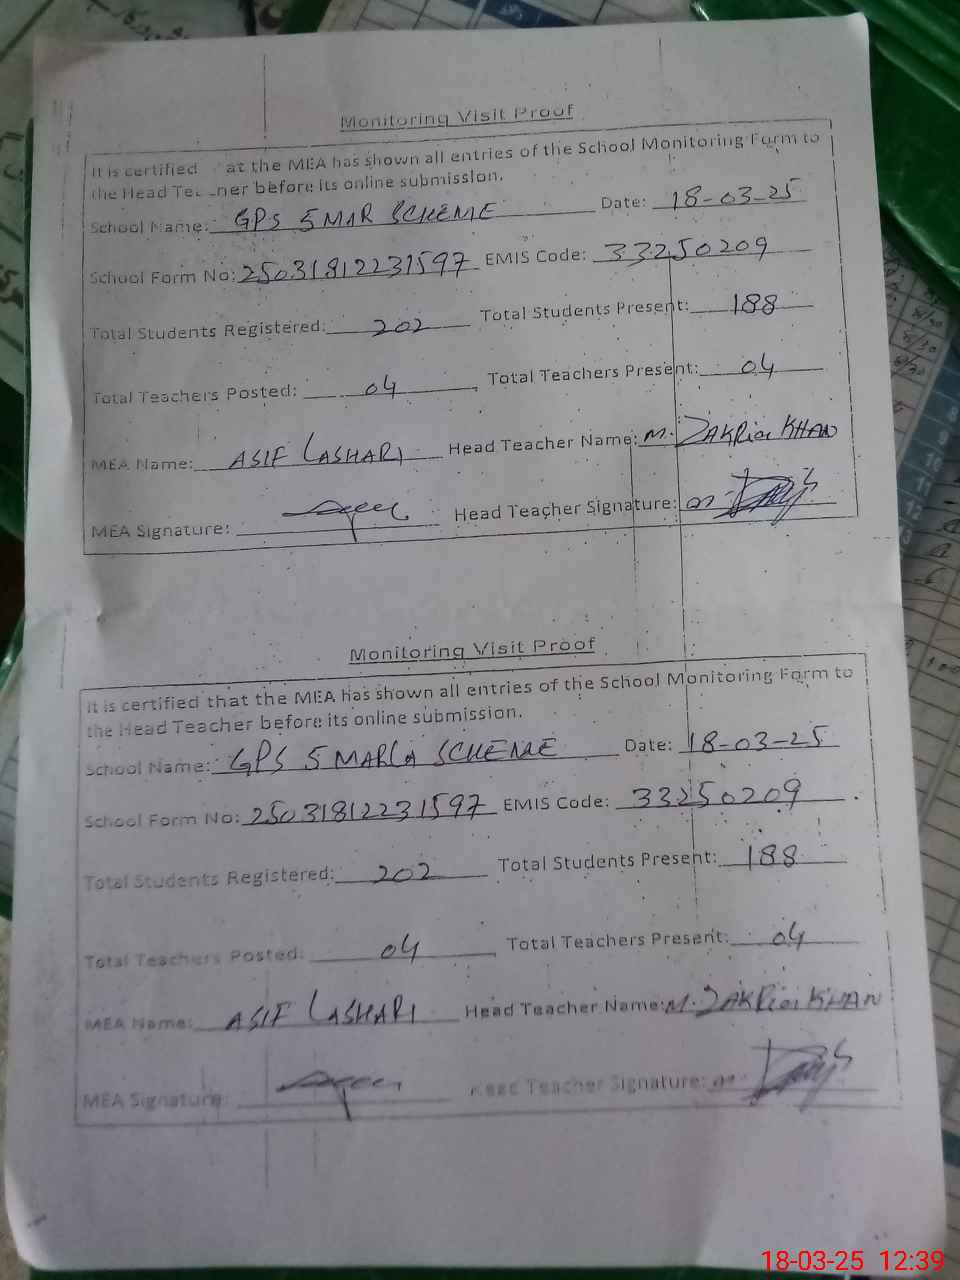 Monitoring Visit Proof
It is certified at the MEA has shown all entries of the School Monitoring Form to
the Head Te ner before its online submission.
School Name: GPS 5 MAR SCHEME Date: 18-03-25
School Form No: 25031812231597 EMIS Code: 33250209
Total Students Registered: 202 Total Students Present: 188
Total Teachers Posted: 04 Total Teachers Present: 04
MEA Name: ASIF LASHARI Head Teacher Name: M. ZAKRia KHAN
MEA Signature: Head Teacher Signature:
Monitoring Visit Proof
It is certified that the MEA has shown all entries of the School Monitoring Form to
the Head Teacher before its online submission.
School Name: GPS 5 MARLA SCHEME Date: 18-03-25
School Form No: 25031812231597 EMIS Code: 33250209
Total Students Registered: 202 Total Students Present: 188
Total Teachers Posted: 04 Total Teachers Present: 04
MEA Name: ASIF LASHARI Head Teacher Name: M. ZAKRia KHAN
MEA Signature: Head Teacher Signature:
18-03-25 12:39